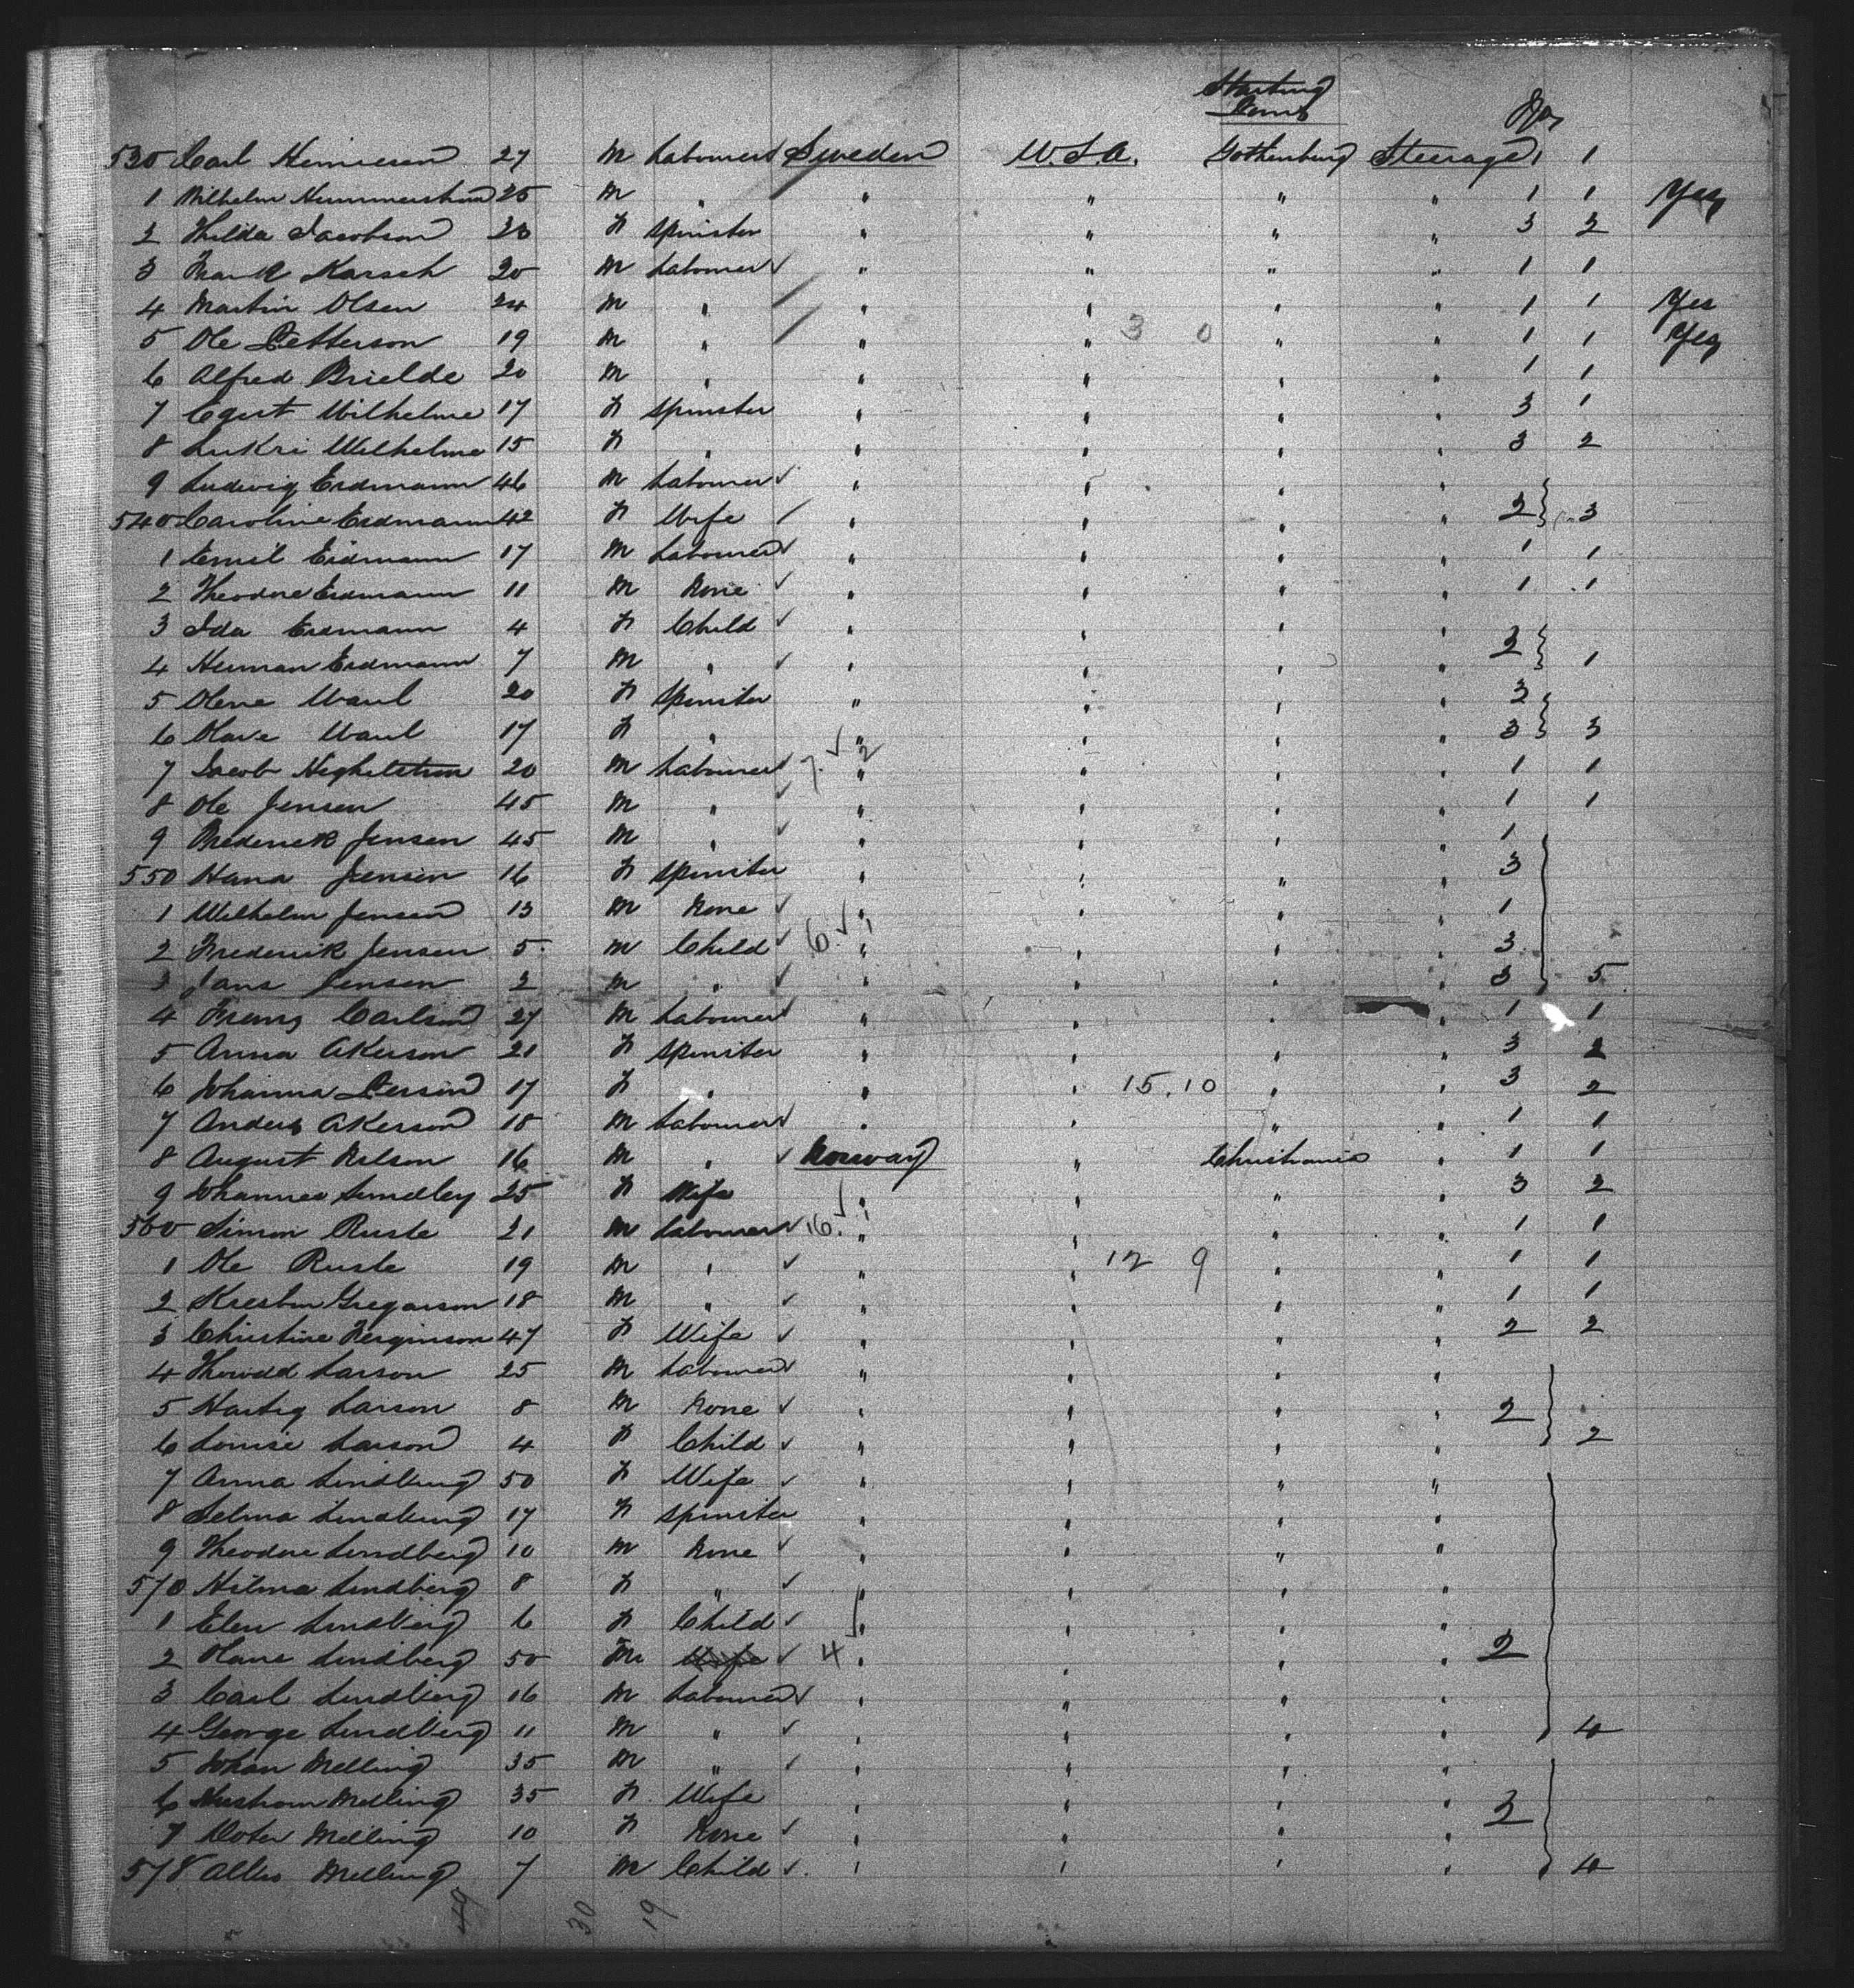 Starting From No
530 Carl 27 M Labourer Sweden U.S.A. Gothenburg Steerage 1 1
1 Wilhelm 25 M " " " " " 1 1 Yes
2 Hilda Jacobson F Spinster " " " " 3 2
3 Frank Karsch 20 M Labourer " " " " 1 1
4 Martin Olsen 24 M " " " " " 1 1 Yes
5 Ole Petterson 19 M " " " 3 0 " " 1 1 Yes
6 Alfred 20 M " " " " " 1 1
7 Wilhelme 17 F Spinster " " " " 3 1
8 Wilhelme 15 F " " " " " 3 2
9 Ludwig Erdmann 46 M Labourer " " " "
540 Caroline Erdmann 42 F Wife " " " " 2 3
1 Emil Erdmann 17 M Labourer " " " " 1 1
2 Theodore Erdmann 11 M None " " " " 1 1
3 Ida Erdmann 4 F Child " " " "
4 Herman Erdmann 7 M " " " " " 2 1
5 Olene 20 F Spinster " " " " 3
6 17 F " " " " " 3 3
7 Jacob 20 M Labourer 7 2 " " " " 1 1
8 Ole Jensen 45 M " " " " " 1 1
9 Frederick Jensen 45 M " " " " " 1
550 Hana Jensen 16 F Spinster " " " " 3
1 Wilhelm Jensen 13 M None " " " " 1
2 Frederick Jensen 5 M Child 6 1 " " " " 3
3 Jans Jensen 2 M " " " " " 3 5
4 Franz Carlson 27 M Labourer " " " " 1 1
5 Anna Akerson 21 F Spinster " " " " 3 2
6 Johanna Person 17 F " " " 15.10 " " 3 2
7 Anders Akerson 18 M Labourer " " " " 1 1
8 August Nelson 16 M " Norway " Christiania " 1 1
9 Johannes Lundley 25 F Wife " " " " 3 2
560 Simon Ruste 21 M Labourer 16 1 " " " " 1 1
1 Ole Ruste 19 M " " " 12 9 " " 1 1
2 Gregarson 18 M " " " " " 1 1
3 Christine Ferginson 47 F Wife " " " " 2 2
4 Larson 25 M Labourer " " " "
5 Hartig Larson 8 M None " " " " 2
6 Louise Larson 4 F Child " " " " 2
7 Anna Lindberg 50 F Wife " " " "
8 Selma Lindberg 17 F Spinster " " " "
9 Theodore Lindberg 10 M None " " " "
570 Hilma Lindberg 8 F " " " " "
1 Elen Lindberg 6 F Child " " " "
2 Hans Lindberg 50 M Wife 4 " " " " 2
3 Carl Lindberg 16 M Labourer " " " "
4 George Lindberg 11 M " " " " " 4
5 Johan Melling 35 M " " " " "
6 Melling 35 F Wife " " " " 2
7 Melling 10 F None " " " "
578 Melling 7 M Child " " " " 4
30 19